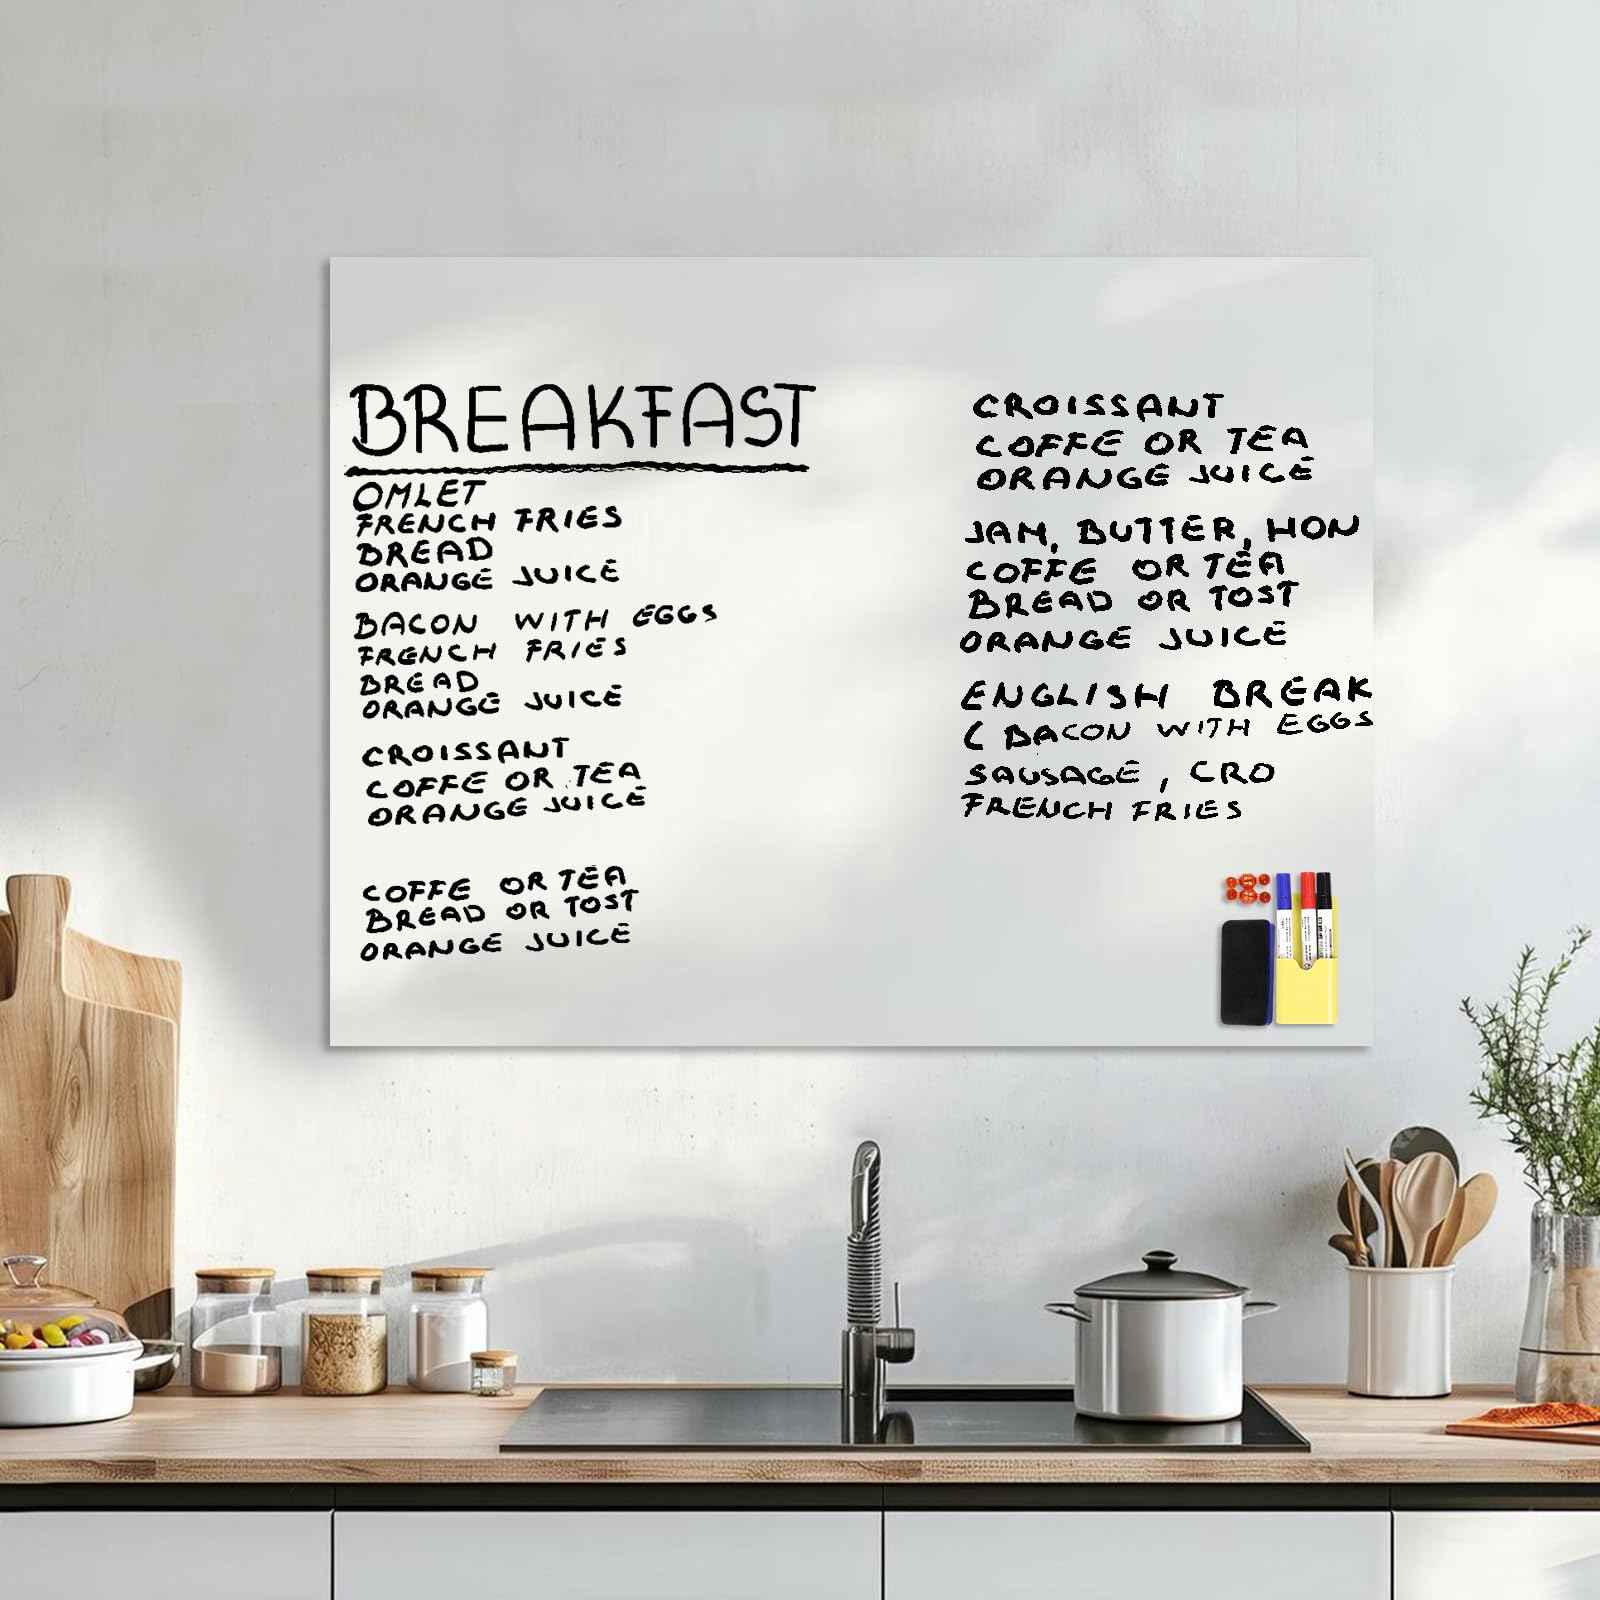 BREAKFAST
OMLET
FRENCH FRIES
BREAD
ORANGE JUICE
BACON WITH EGGS
FRENCH FRIES
BREAD
ORANGE JUICE
CROISSANT
COFFE OR TEA
ORANGE JUICE
COFFE OR TEA
BREAD OR TOST
ORANGE JUICE
CROISSANT
COFFE OR TEA
ORANGE JUICE
JAM, BUTTER, HON
COFFE OR TEA
BREAD OR TOST
ORANGE JUICE
ENGLISH BREAK
( BACON WITH EGGS
SAUSAGE , CRO
FRENCH FRIES